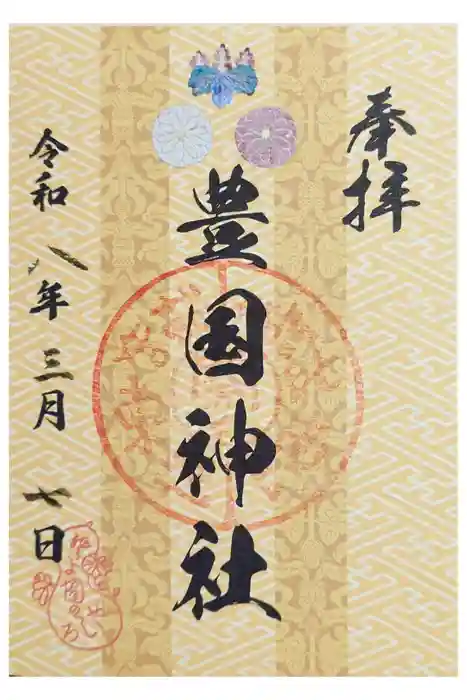 奉拝
豊国神社
令和八年三月七日